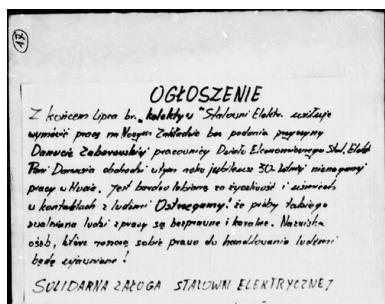 IX
OGŁOSZENIE
Z końcem lipca br. "kolektyw" Stalowni Elektr. usiłuje
wymówić pracę na Naszym Zakładzie bez podania przyczyny
Danucie Zaborowskiej pracownicy Działu Ekonomicznego Stal. Elekt
Pani Danusia obchodzi w tym roku jubileusz 30-letniej nienagannej
pracy w Hucie. Jest bardzo lubiana za życzliwość i uśmiech
w kontaktach z ludźmi Ostrzegamy! że próby takiego
zwalniania ludzi z pracy są bezprawne i karalne. Nazwiska
osób, które roszczą sobie prawo do handlowania ludźmi
będą ujawniane!
SOLIDARNA ZAŁOGA STALOWNI ELEKTRYCZNEJ